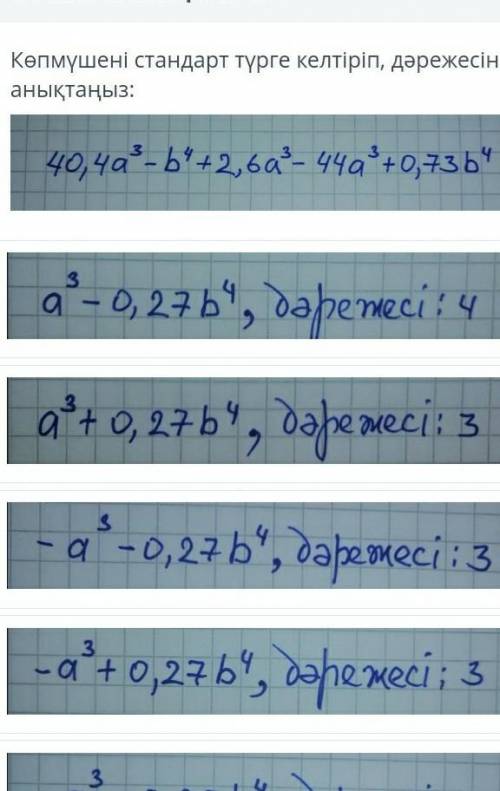 Көпмүшені стандарт түрге келтіріп, дәрежесін
анықтаңыз:
40,4a³-b⁴+2,6a³-44a³+0,73b⁴
a³-0,27b⁴, дәрежесі: 4
a³+0,27b⁴, дәрежесі: 3
-a³-0,27b⁴, дәрежесі: 3
-a³+0,27b⁴, дәрежесі; 3